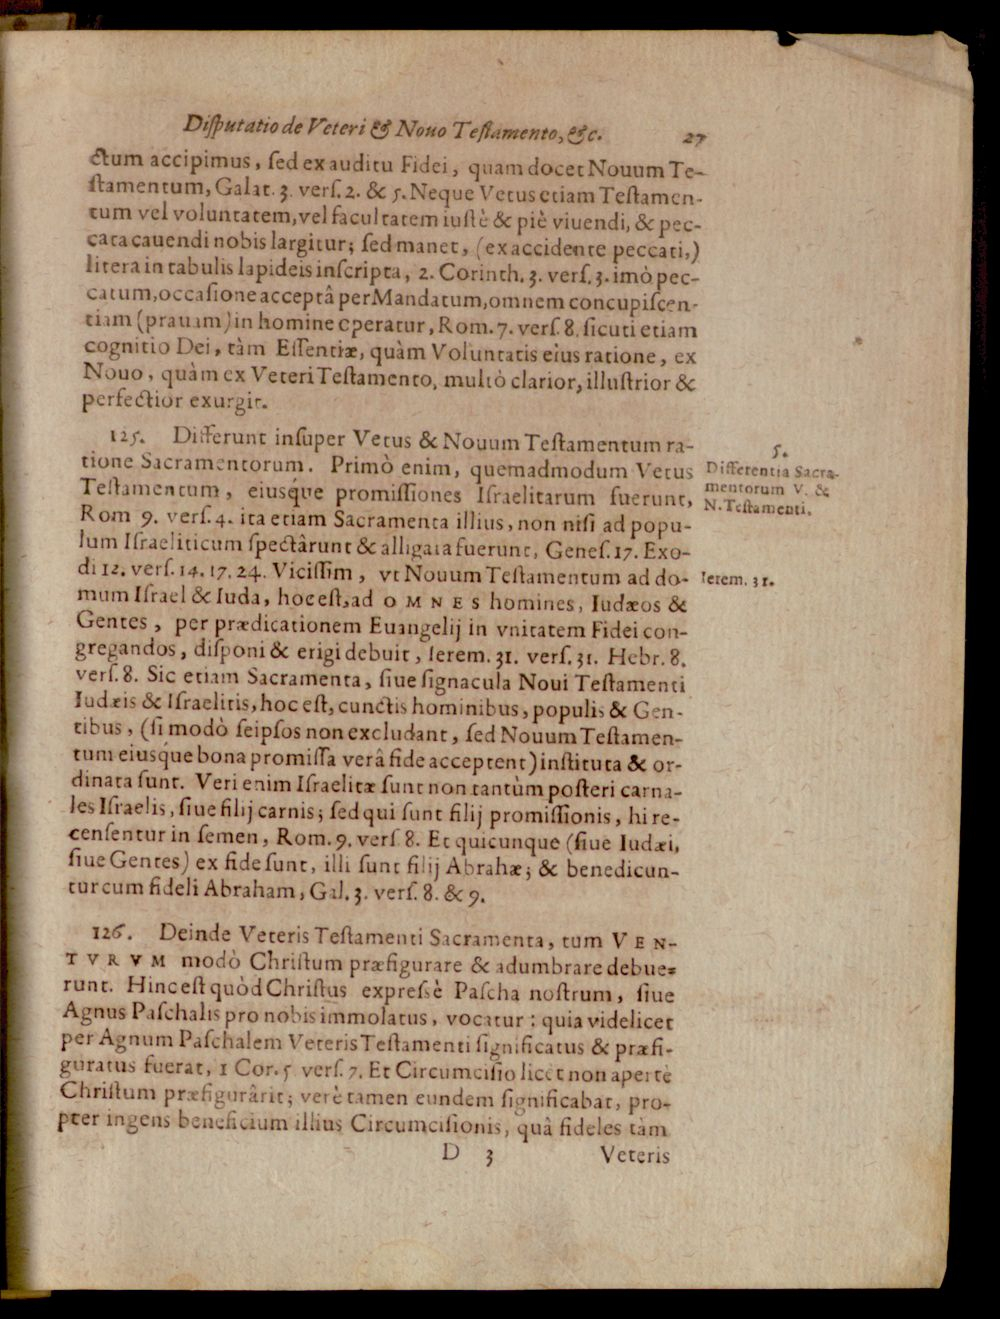 Diſputatio de Veteri & Nouo Teſtamento, &c. 27
ctum accipimus, ſed ex auditu Fidei, quam docet Nouum Te-
ſtamentum, Galat. 3. verſ. 2. & 5. Neque Vetus etiam Teſtamen-
tum vel voluntatem, vel facultatem iuſtè & piè viuendi, & pec-
cata cauendi nobis largitur; ſed manet, (ex accidente peccati,)
litera in tabulis lapideis inſcripta, 2. Corinth. 3. verſ. 3. imò pec-
catum, occaſione acceptâ per Mandatum, omnem concupiſcen-
tiam (prauam) in homine operatur, Rom. 7. verſ. 8. ſicuti etiam
cognitio Dei, tàm Eſſentiæ, quàm Voluntatis eius ratione, ex
Nouo, quàm ex Veteri Teſtamento, multò clarior, illuſtrior &
perfectior exurgit.
125. Differunt inſuper Vetus & Nouum Teſtamentum ra-
tione Sacramentorum. Primò enim, quemadmodum Vetus
Teſtamentum, eiusq́ue promiſſiones Iſraelitarum fuerunt,
Rom 9. verſ. 4. ita etiam Sacramenta illius, non niſi ad popu-
lum Iſraeliticum ſpectârunt & alligata fuerunt, Geneſ. 17. Exo-
di 12. verſ. 14. 17. 24. Viciſſim, vt Nouum Teſtamentum ad do-
mum Iſrael & Iuda, hoc eſt, ad OMNES homines, Iudæos &
Gentes, per prædicationem Euangelij in vnitatem Fidei con-
gregandos, diſponi & erigi debuit, Ierem. 31. verſ. 31. Hebr. 8.
verſ. 8. Sic etiam Sacramenta, ſiue ſignacula Noui Teſtamenti
Iudæis & Iſraelitis, hoc eſt, cunctis hominibus, populis & Gen-
tibus, (ſi modò ſeipſos non excludant, ſed Nouum Teſtamen-
tum eiusq́ue bona promiſſa verâ fide acceptent) inſtituta & or-
dinata ſunt. Veri enim Iſraelitæ ſunt non tantùm poſteri carna-
les Iſraelis, ſiue filij carnis; ſed qui ſunt filij promiſſionis, hi re-
cenſentur in ſemen, Rom. 9. verſ 8. Et quicunque (ſiue Iudæi,
ſiue Gentes) ex fide ſunt, illi ſunt filij Abrahæ; & benedicun-
tur cum fideli Abraham, Gal. 3. verſ. 8. & 9.
5.
Differentia Sacra-
mentorum V. &
N. Teſtamenti.
Ierem. 31.
126. Deinde Veteris Teſtamenti Sacramenta, tum VEN-
TVRVM modò Chriſtum præfigurare & adumbrare debue-
runt. Hinc eſt quòd Chriſtus expreſsè Paſcha noſtrum, ſiue
Agnus Paſchalis pro nobis immolatus, vocatur: quia videlicet
per Agnum Paſchalem Veteris Teſtamenti ſignificatus & præfi-
guratus fuerat, 1 Cor. 5 verſ. 7. Et Circumciſio licet non apertè
Chriſtum præfigurârit; verè tamen eundem ſignificabat, pro-
pter ingens beneficium illius Circumciſionis, quâ fideles tàm
D 3 Veteris